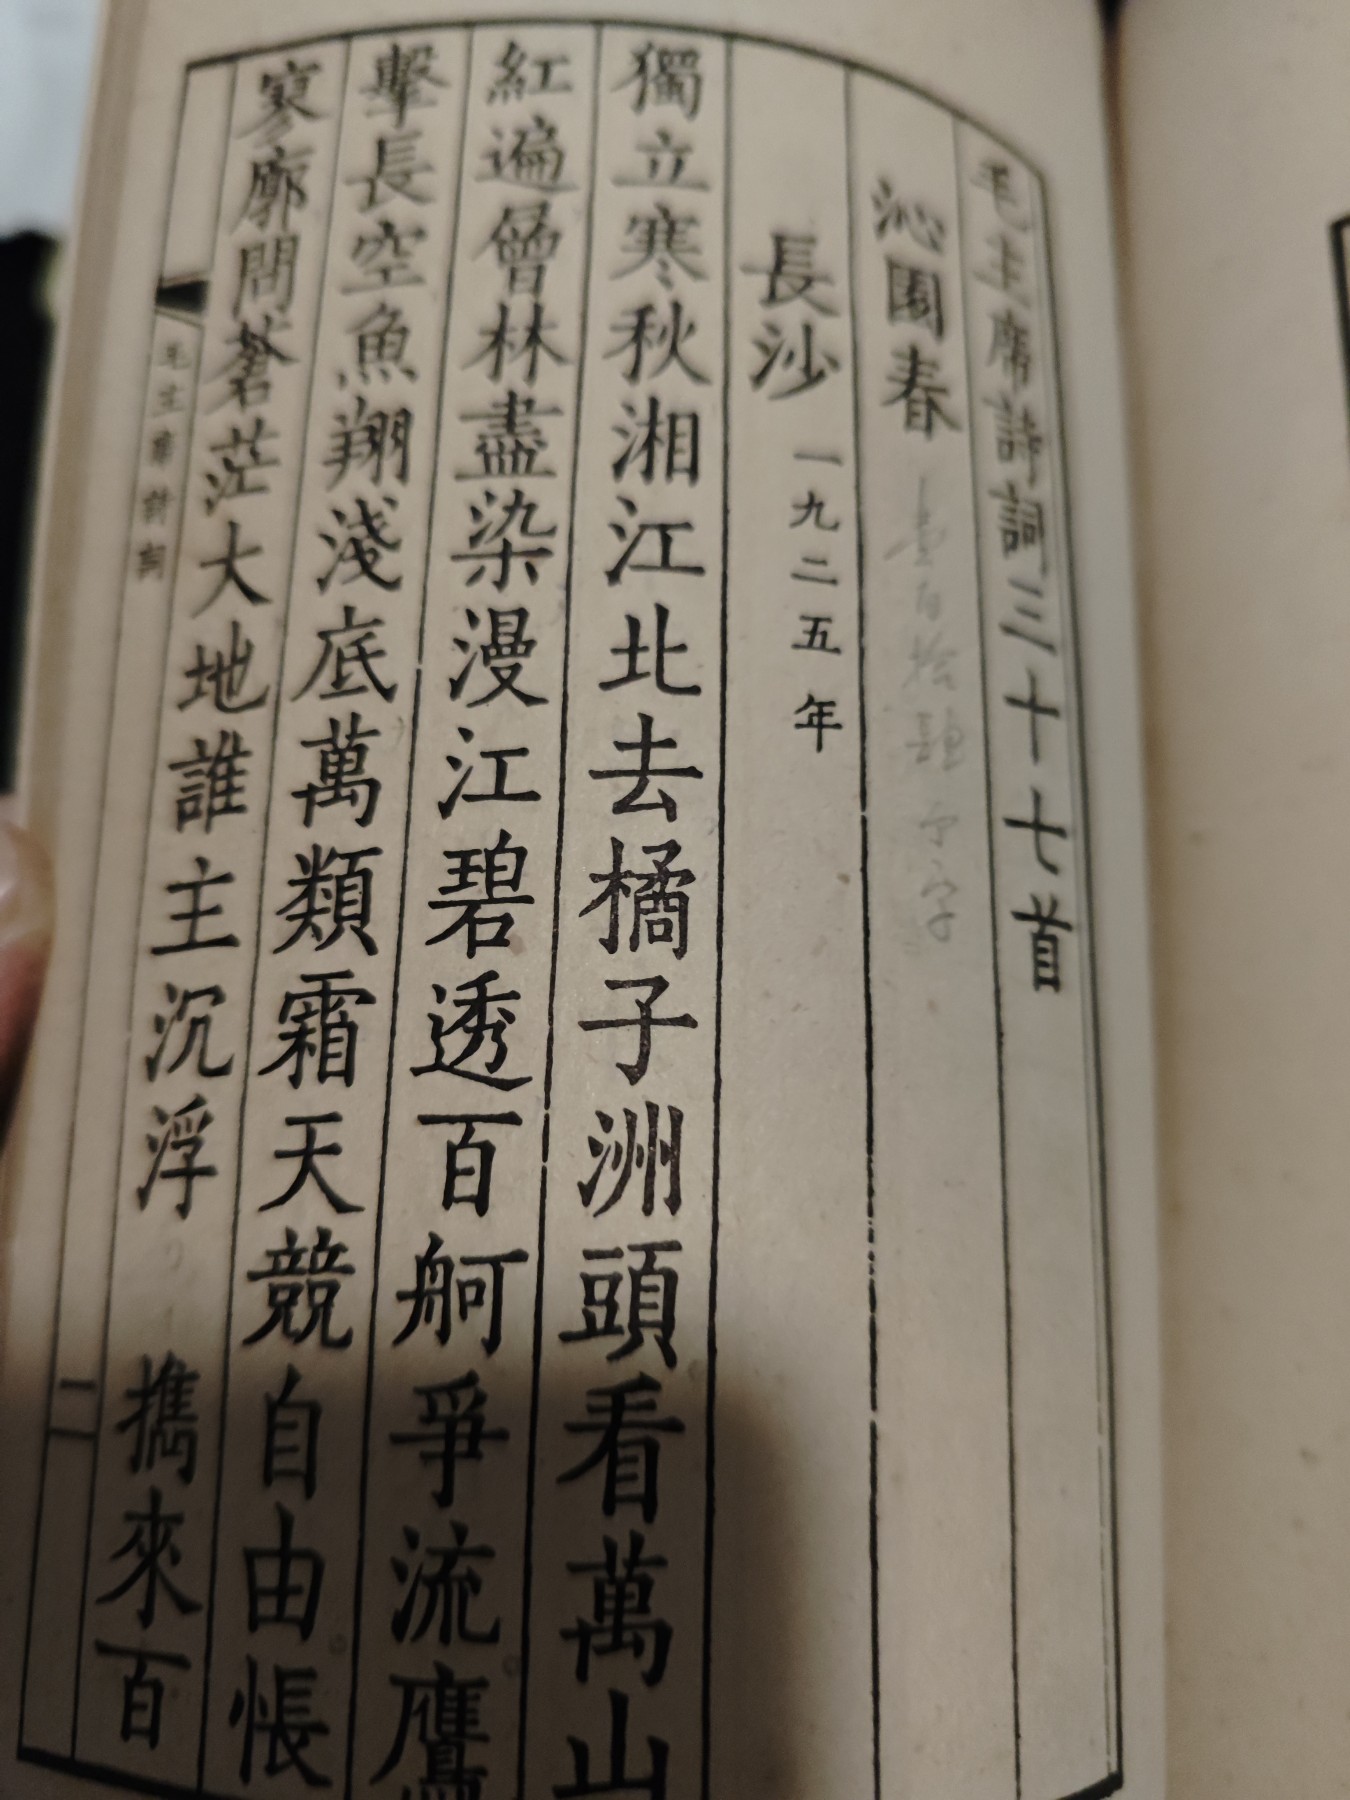 毛主席詩詞三十七首
沁園春
壹百拾肆个字
長沙 一九二五年
獨立寒秋湘江北去橘子洲頭看萬山
紅遍層林盡染漫江碧透百舸爭流鷹
擊長空魚翔淺底萬類霜天競自由悵
寥廓問蒼茫大地誰主沉浮 攜來百
毛主席詩詞
一